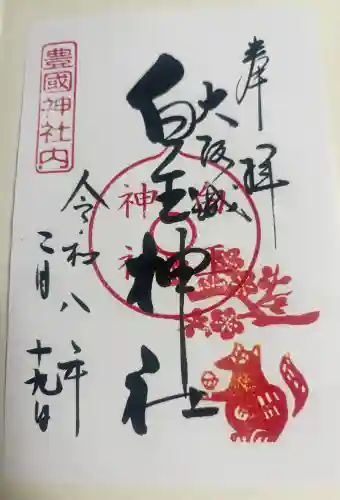 奉拝
大阪城
白玉神社
令和八年
二月十九日
豊國神社内